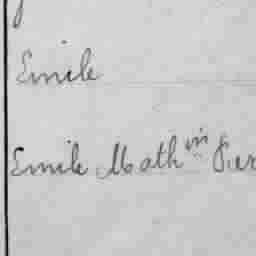 Emile
Emile Math in